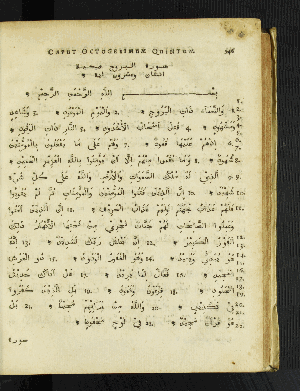 CAPUT OCTOGESIMUM QUINTUM 546
سورة البروج مكية
اثنتان وعشرون اية *
بِسْمِ اللَّهِ الرَّحْمَنِ الرَّحِيمِ *
وَالسَّمَاءِ ذَاتِ الْبُرُوجِ * 2. وَالْيَوْمِ الْمَوْعُودِ * 3. وَشَاهِدٍ
وَمَشْهُودٍ * 4. قُتِلَ أَصْحَابُ الْأُخْدُودِ * 5. النَّارِ ذَاتِ الْوَقُودِ *
6. إِذْ هُمْ عَلَيْهَا قُعُودٌ * 7. وَهُمْ عَلَى مَا يَفْعَلُونَ بِالْمُؤْمِنِينَ
شُهُودٌ * 8. وَمَا نَقَمُوا مِنْهُمْ إِلَّا أَنْ يُؤْمِنُوا بِاللَّهِ الْعَزِيزِ الْحَمِيدِ *
9. الَّذِي لَهُ مُلْكُ السَّمَوَاتِ وَالْأَرْضِ وَاللَّهُ عَلَى كُلِّ شَيْءٍ
شَهِيدٌ * 10. إِنَّ الَّذِينَ فَتَنُوا الْمُؤْمِنِينَ وَالْمُؤْمِنَاتِ ثُمَّ لَمْ يَتُوبُوا
فَلَهُمْ عَذَابُ جَهَنَّمَ وَلَهُمْ عَذَابُ الْحَرِيقِ * 11. إِنَّ الَّذِينَ آمَنُوا
وَعَمِلُوا الصَّالِحَاتِ لَهُمْ جَنَّاتٌ تَجْرِي مِنْ تَحْتِهَا الْأَنْهَارُ ذَلِكَ
الْفَوْزُ الْكَبِيرُ * 12. إِنَّ بَطْشَ رَبِّكَ لَشَدِيدٌ * 13. إِنَّهُ
هُوَ يُبْدِئُ وَيُعِيدُ * 14. وَهُوَ الْغَفُورُ الْوَدُودُ * 15. ذُو الْعَرْشِ
الْمَجِيدُ * 16. فَعَّالٌ لِمَا يُرِيدُ * 17. هَلْ أَتَاكَ حَدِيثُ
الْجُنُودِ * 18. فِرْعَوْنَ وَثَمُودَ * 19. بَلِ الَّذِينَ كَفَرُوا
فِي تَكْذِيبٍ * 20. وَاللَّهُ مِنْ وَرَائِهِمْ مُحِيطٌ * 21. بَلْ
هُوَ قُرْآنٌ مَجِيدٌ * 22. فِي لَوْحٍ مَحْفُوظٍ *
سورة